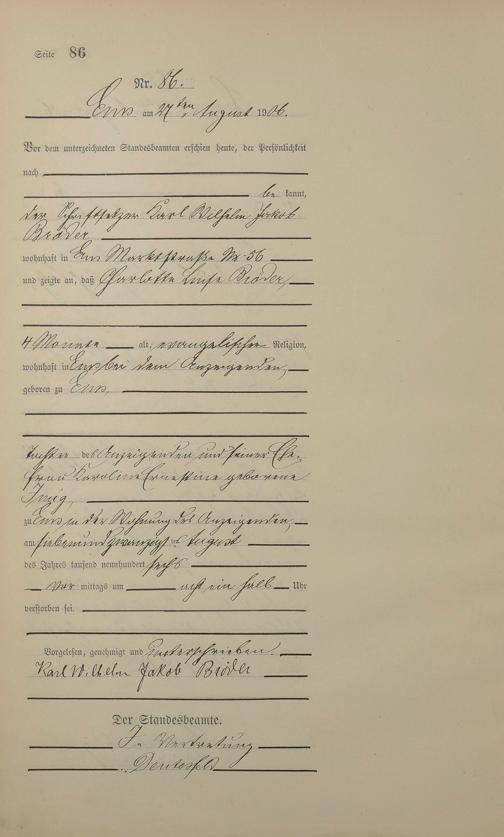 Seite 86
Nr. 86.
Ems am 27ten August 1906.
Vor dem unterzeichneten Standesbeamten erschien heute, der Persönlichkeit
nach
be kannt,
der Schriftsetzer Karl Wilhelm Jakob
Bröder
wohnhaft in Ems Marktstraße Nr. 56
und zeigte an, daß Charlotte Luise Bröder,
4 Monate alt, evangelischer Religion,
wohnhaft in Ems bei dem Anzeigenden,
geboren zu Ems,
Tochter des Anzeigenden und seiner Ehe-
frau Karoline Ernestine geborene
zu Ems in der Wohnung des Anzeigenden,
am siebenundzwanzigsten August
des Jahres tausend neunhundert sechs
Vor mittags um acht ein halb Uhr
verstorben sei.
Vorgelesen, genehmigt und unterschrieben.
Karl Wilhelm Jakob Bröder
Der Standesbeamte.
In Vertretung